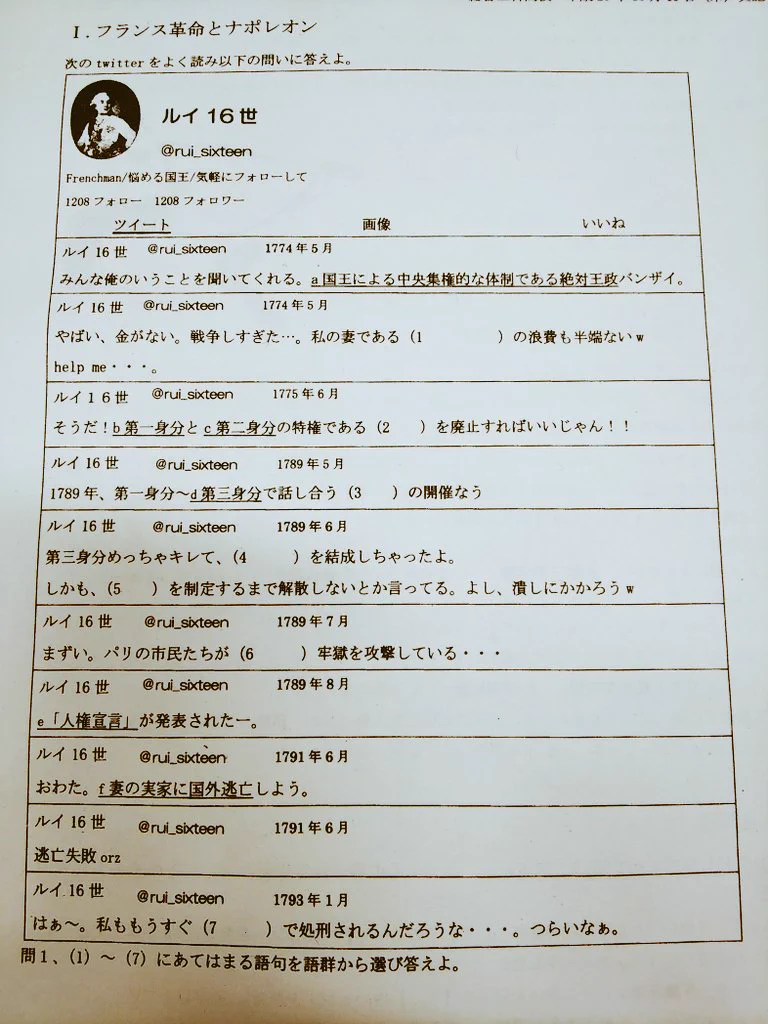 I．フランス革命とナポレオン
次の twitter をよく読み以下の問いに答えよ。
ルイ 16 世
@rui_sixteen
Frenchman/悩める国王/気軽にフォローして
1208 フォロー　1208 フォロワー
ツイート　画像　いいね
ルイ 16 世　@rui_sixteen　1774 年 5 月
みんな俺のいうことを聞いてくれる。a 国王による中央集権的な体制である絶対王政バンザイ。
ルイ 16 世　@rui_sixteen　1774 年 5 月
やばい、金がない。戦争しすぎた…。私の妻である（1　　　　　）の浪費も半端ない w
help me・・・。
ルイ 1 6 世　@rui_sixteen　1775 年 6 月
そうだ！b 第一身分と c 第二身分の特権である（2　　）を廃止すればいいじゃん！！
ルイ 16 世　@rui_sixteen　1789 年 5 月
1789 年、第一身分～d 第三身分で話し合う（3　　）の開催なう
ルイ 16 世　@rui_sixteen　1789 年 6 月
第三身分めっちゃキレて、（4　　　）を結成しちゃったよ。
しかも、（5　　）を制定するまで解散しないとか言ってる。よし、潰しにかかろう w
ルイ 16 世　@rui_sixteen　1789 年 7 月
まずい。パリの市民たちが（6　　　）牢獄を攻撃している・・・
ルイ 16 世　@rui_sixteen　1789 年 8 月
e「人権宣言」が発表されたー。
ルイ 16 世　@rui_sixteen　1791 年 6 月
おわた。f 妻の実家に国外逃亡しよう。
ルイ 16 世　@rui_sixteen　1791 年 6 月
逃亡失敗 orz
ルイ 16 世　@rui_sixteen　1793 年 1 月
はぁ～。私ももうすぐ（7　　　）で処刑されるんだろうな・・・。つらいなぁ。
問 1、（1）～（7）にあてはまる語句を語群から選び答えよ。